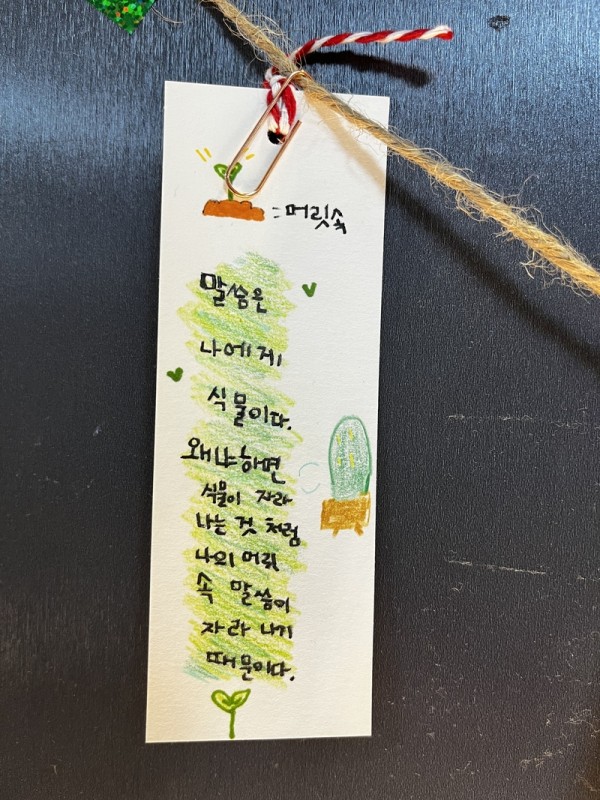 =머릿속
말씀은
나에게
식물이다.
왜냐하면
식물이 자라
나는 것 처럼
나의 머릿
속 말씀이
자라 나기
때문이다.